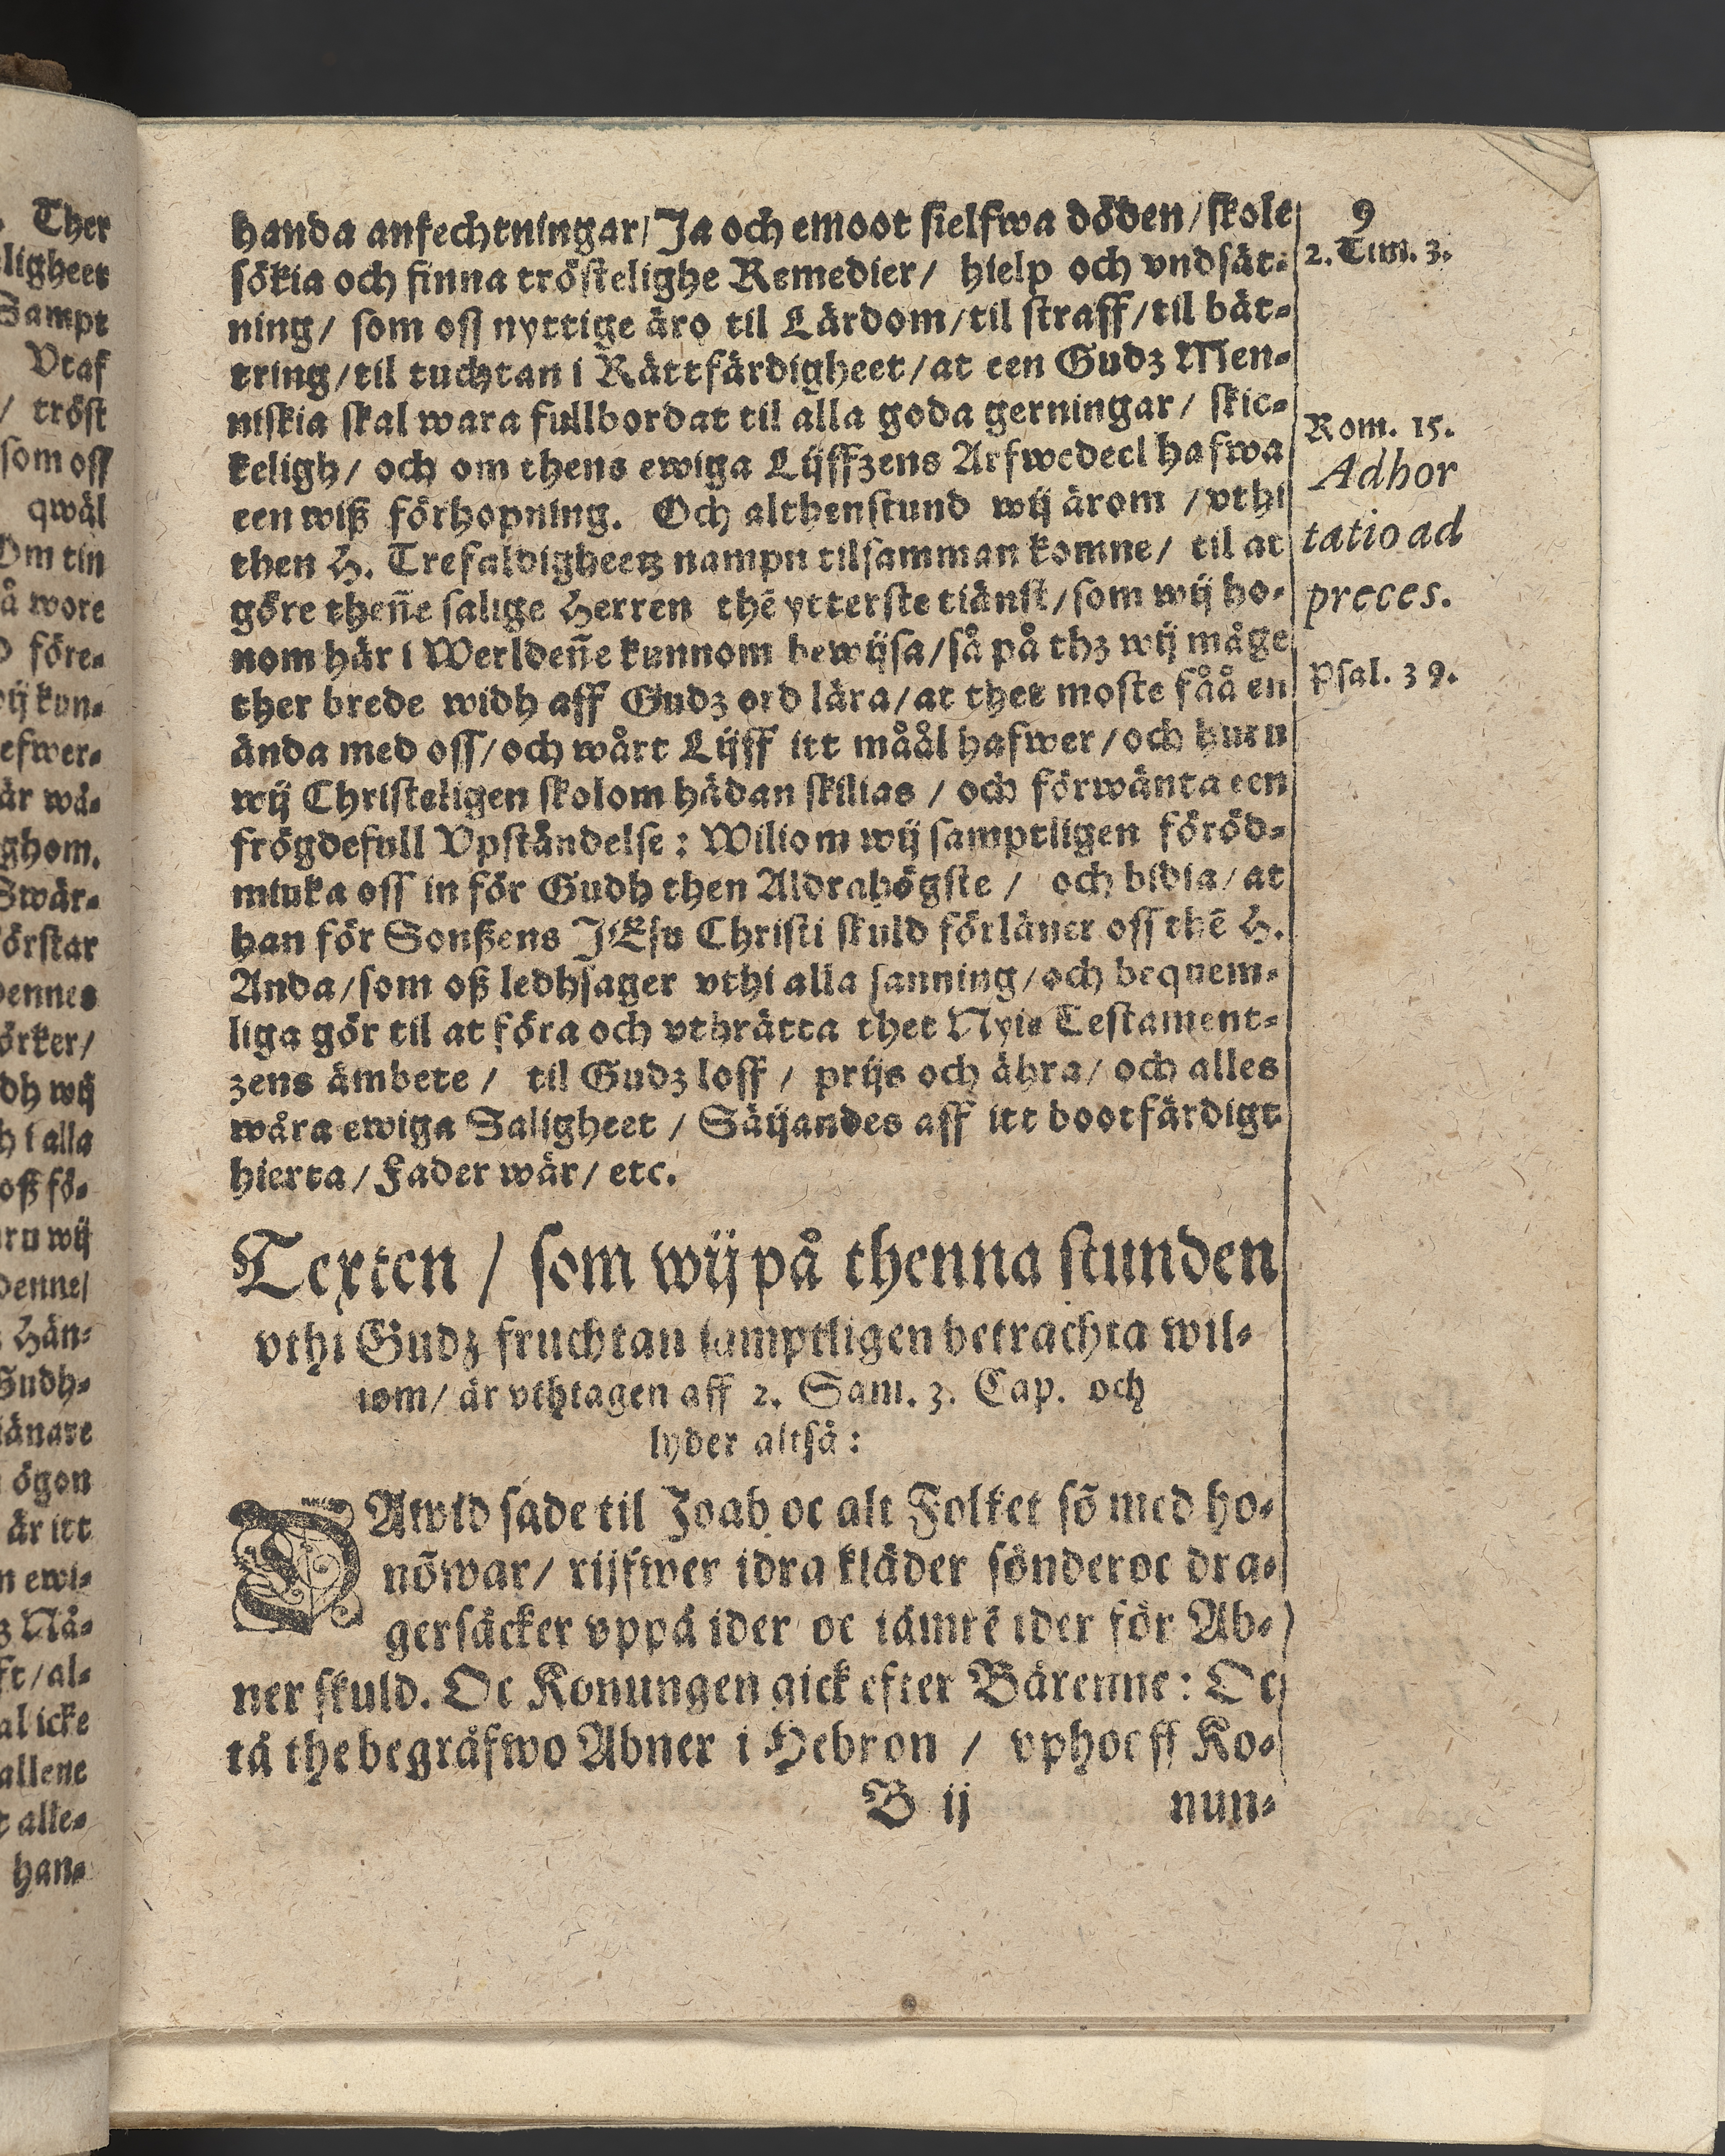 handa anfechtningar/ Ja och emoot sielfwa döden/ skole
sökia och finna tröstelighe Remedier/ hielp och vndsät-
ning/ som oss nyttige äro til Lärdom/ til straff/ til bät-
tring/ til tuchtan i Rättfärdigheet/ at een Gudz Men-
niskia skal wara fullbordat til alla goda gerningar/ skic-
keligh/ och om thens ewiga Lijffzens Arfwedeel hafwa
een wiß förhopning. Och althenstund wij ärom / vthi
then H. Trefaldigheetz nampn tilsamman komne/ til at
göre theñe salige Herren thē ytterste tiänst/ som wij ho-
nom här i Werldeñe kunnom bewijsa/ så på thz wij måge
ther brede widh aff Gudz ord lära/ at thet moste fåå en
ända med oss/ och wårt Lijff itt måål hafwer/ och huru
wij Christeligen skolom hädan skilias / och förwänta een
frögdefull Vpståndelse: Wiliom wij samptligen föröd-
miuka oss in för Gudh then Aldrahögste / och bidia/ at
han för Sonßens JEsu Christi skuld förläner oss thē H.
Anda/ som oß ledhsager vthi alla sanning/ och bequem-
liga gör til at föra och vthrätta thet Nyia Testament-
zens ämbete / til Gudz loff / prijs och ähra/ och alles
wåra ewiga Saligheet / Säijandes aff itt bootfärdigt
hierta/ Fader wår/ etc.
Texten / som wij på thenna stunden
vthi Gudz fruchtan samptligen betrachta wil-
iom/ är vthtagen aff 2. Sam. 3. Cap. och
lyder altså:
DAwid sade til Joab oc alt Folket sõ med ho-
nõ war/ rijfwer idra kläder sönder oc dra-
ger säcker vppå ider oc iämrē ider för Ab-
ner skuld. Oc Konungen gick efter Bårenne: Oc
tå the begräfwo Abner i Hebron / vphoeff Ko-
B ij nun-
9
2. Tim. 3.
Rom. 15.
Adhor
tatio ad
preces.
Psal. 39.
Ther
ligheet
Sampt
Vtaf
/ tröst
som oss
qwäl
Om tin
å wore
före-
ij kun-
efwer-
är wå-
ghom.
Swår-
örstar
dennes
örker/
dh wij
h i alla
oß fö-
ru wij
denne/
Hän-
Gudh-
iänare
ögon
är itt
n ewi-
z Nå-
ft/ al-
al icke
allene
t alle-
han-